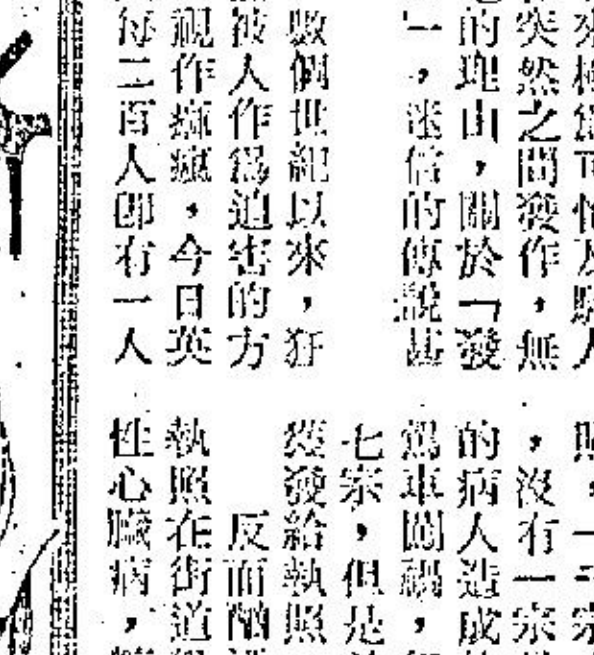 突然之間發作,無
的理由,關於「發
」,迷信的傳說甚
數個世紀以來,狂
被人作爲迫害的方
視作瘋癲,今日英
每二百人卽有一人
,沒有一宗
的病人造成
駕車闖禍,
七宗,但是
獲發給執照
反而
執照在街道
性心臟病,